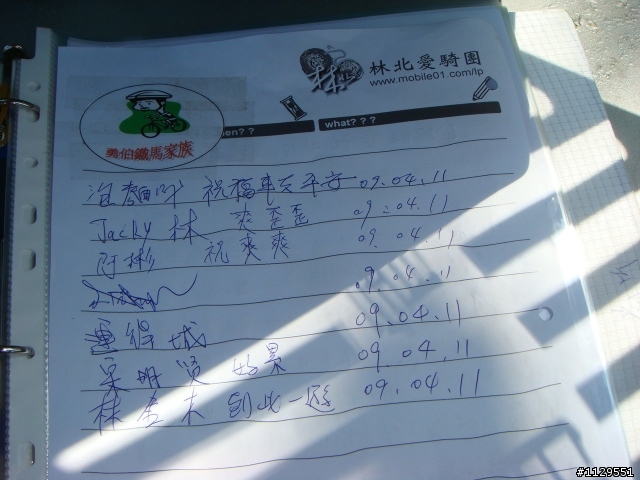 林北愛騎團
www.mobile01.com/lp
en??
what???
勇伯鐵馬家族
泡麵 祝福車友平安 09.04.11
Jacky 林 爽歪歪 09.04.11
阿彬 祝爽爽 09.04.11
09.04.11
城 09.04.11
明賢 09.04.11
林 木 到此一遊 09.04.11
#1129551